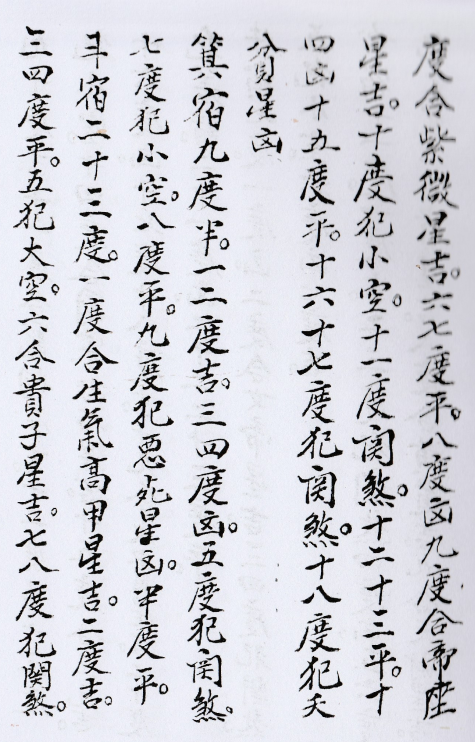 度合紫微星吉。六七度平。八度凶九度合帝座
星吉。十度犯小空。十一度関煞。十二十三平。十
四凶十五度平。十六十七度犯関煞。十八度犯天
貧星凶
箕宿九度半。一二度吉。三四度凶。五度犯関煞。
七度犯小空。八度平。九度犯悪死星凶。半度平。
斗宿二十三度。一度合生氣高甲星吉。二度吉。
三四度平。五犯大空。六合貴子星吉。七八度犯関煞。